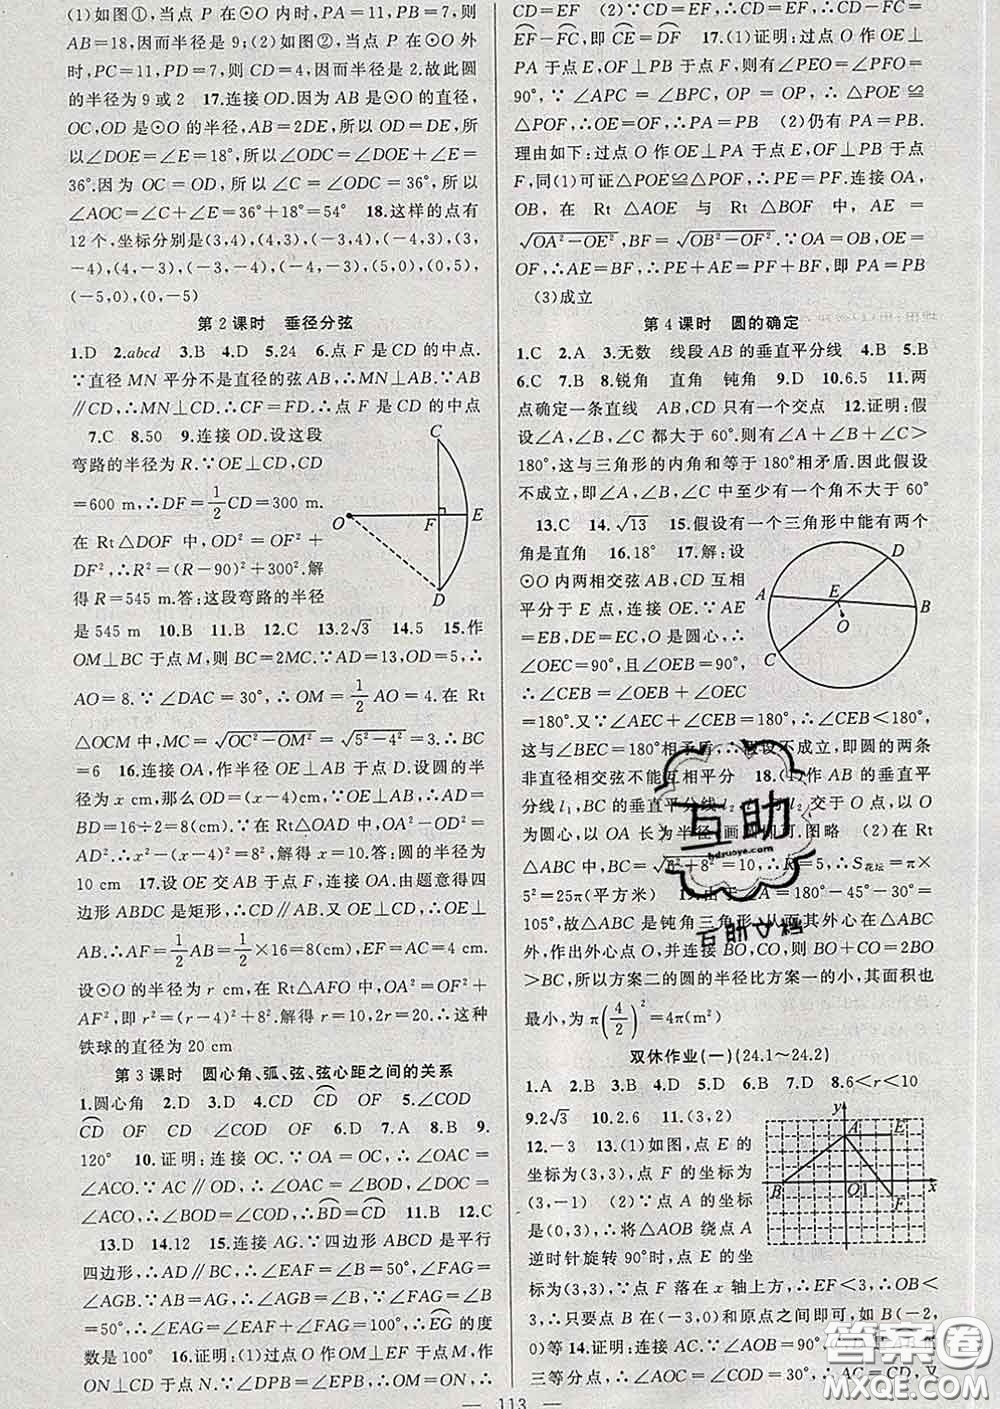 (1)如图①,当点 P 在⊙O 内时,PA=11,PB=7,则
AB=18,因而半径是 9;(2)如图②,当点 P 在⊙O 外
时,PC=11,PD=7,则 CD=4,因而半径是 2.故此圆
的半径为 9 或 2 17.连接 OD.因为 AB 是⊙O 的直径,
OC,OD 是⊙O 的半径,AB=2DE,所以 OD=DE,所
以∠DOE=∠E=18°,所以∠ODC=∠DOE+∠E=
36°.因为 OC=OD,所以∠C=∠ODC=36°,所以
∠AOC=∠C+∠E=36°+18°=54° 18.这样的点有
12 个,坐标分别是(3,4),(4,3),(-3,4),(-4,3),(3,
-4),(4,-3),(-3,-4),(-4,-3),(5,0),(0,5),
(-5,0),(0,-5)
第 2 课时 垂径分弦
1.D 2.abcd 3.B 4.D 5.24 6.点 F 是 CD 的中点.
∵直径 MN 平分不是直径的弦 AB,∴MN⊥AB.∵AB
∥CD,∴MN⊥CD.∴CF=FD.∴点 F 是 CD 的中点
7.C 8.50 9.连接 OD.设这段
弯路的半径为 R.∵OE⊥CD,CD
=600 m,∴DF=1/2CD=300 m.
在 Rt△DOF 中,OD²=OF²+
DF²,∴R²=(R-90)²+300².解
得 R=545 m.答:这段弯路的半径
C
O F E
D
是 545 m 10.B 11.B 12.C 13.2√3 14.5 15.作
OM⊥BC 于点 M,则 BC=2MC.∵AD=13,OD=5,∴
AO=8.∵∠DAC=30°,∴OM=1/2AO=4.在 Rt
△OCM 中,MC=√(OC²-OM²)=√(5²-4²)=3.∴BC
=6 16.连接 OA,作半径 OE⊥AB 于点 D.设圆的半
径为 x cm,那么 OD=(x-4)cm.∵OE⊥AB,∴AD=
BD=16÷2=8(cm).在 Rt△OAD 中,OA²-OD²=
AD².∴x²-(x-4)²=8²,解得 x=10.答:圆的半径为
10 cm 17.设 OE 交 AB 于点 F,连接 OA.由题意得四
边形 ABDC 是矩形,∴CD∥AB.又 OE⊥CD,∴OE⊥
AB.∴AF=1/2AB=1/2×16=8(cm),EF=AC=4 cm.
设⊙O 的半径为 r cm,在 Rt△AFO 中,OA²=OF²+
AF²,即 r²=(r-4)²+8².解得 r=10,2r=20.∴这种
铁球的直径为 20 cm
第 3 课时 圆心角、弧、弦、弦心距之间的关系
1.圆心角 2.D 3.D 4.CD⌒ CD OF 5.∠COD
CD⌒ OF CD ∠COD OF 6.D 7.A 8.B 9.
120° 10.证明:连接 OC.∵OA=OC,∴∠OAC=
∠ACO.∵AC∥OD,∴∠OAC=∠BOD,∠DOC=
∠ACO,∴∠BOD=∠COD,∴BD⌒=CD⌒ 11.B 12.C
13.D 14.12 15.连接 AG.∵四边形 ABCD 是平行
四边形,∴AD∥BC,∴∠EAF=∠B=50°,∠FAG=
∠AGB.∵AB=AG,∴∠AGB=∠B,∴∠FAG=∠B
=50°,∴∠EAG=∠EAF+∠FAG=100°,∴EG⌒的度
数是 100° 16.证明:(1)过点 O 作 OM⊥EF 于点 M,作
ON⊥CD 于点 N.∵∠DPB=∠EPB,∴OM=ON,∴
CD=EF (2)∵CD=EF,∴CD⌒=EF⌒,∴CD⌒-FC⌒=
EF⌒-FC⌒,即 CE⌒=DF⌒ 17.(1)证明:过点 O 作 OE⊥
PA 于点 E,OF⊥PB 于点 F,则有∠PEO=∠PFO=
90°,∵∠APC=∠BPC,OP=OP,∴△POE≌
△POF,∴OE=OF,∴PA=PB (2)仍有 PA=PB.
理由如下:过点 O 作 OE⊥PA 于点 E,OF⊥PB 于点
F,同(1)可证△POE≌△POF,∴PE=PF.连接 OA,
OB,在 Rt△AOE 与 Rt△BOF 中,AE=
√(OA²-OE²),BF=√(OB²-OF²).∵OA=OB,OE=
OF,∴AE=BF,∴PE+AE=PF+BF,即 PA=PB
(3)成立
第 4 课时 圆的确定
1.C 2.A 3.无数 线段 AB 的垂直平分线 4.B 5.B
6.C 7.B 8.锐角 直角 钝角 9.D 10.6.5 11.两
点确定一条直线 AB,CD 只有一个交点 12.证明:假
设∠A,∠B,∠C 都大于 60°.则有∠A+∠B+∠C>
180°,这与三角形的内角和等于 180°相矛盾.因此假设
不成立,即∠A,∠B,∠C 中至少有一个角不大于 60°
13.C 14.√13 15.假设有一个三角形中能有两个
角是直角 16.18° 17.解:设
⊙O 内两相交弦 AB,CD 互相
平分于 E 点,连接 OE.∵AE
=EB,DE=EC,O 是圆心,∴
∠OEC=90°,且∠OEB=90°,
∴∠CEB=∠OEB+∠OEC
A D E B O C
=180°.又∵∠AEC+∠CEB=180°,∴∠CEB<180°,
这与∠BEC=180°相矛盾,∴假设不成立,即圆的两条
非直径相交弦不能互相平分 18.(1)作 AB 的垂直平
分线 l₁,BC 的垂直平分线 l₂,l₁与 l₂ 交于 O 点,以 O
为圆心,以 OA 长为半径画圆即可.图略 (2)在 Rt
△ABC 中,BC=√(6²+8²)=10,∴R=5,∴S花坛=π×
5²=25π(平方米) 19.由于∠A=180°-45°-30°=
105°,故△ABC 是钝角三角形,从而其外心在△ABC
外,作出外心点 O,并连接 BO,CO,则 BO+CO=2BO
>BC,所以方案二的圆的半径比方案一的小,其面积也
最小,为 π(4/2)²=4π(m²)
双休作业(一)(24.1~24.2)
1.A 2.B 3.A 4.C 5.B 6.A 7.D 8.6<r<10
9.2√3 10.2.6 11.(3,2)
12.-3 13.(1)如图,点 E 的
坐标为(3,3),点 F 的坐标为
(3,-1) (2)∵点 A 的坐标
是(0,3),∴将△AOB 绕点 A
逆时针旋转 90°时,点 E 的坐
y A E B O 1 F x
标为(3,3),∵点 F 落在 x 轴上方,∴EF<3,∴OB<
3,∴只要点 B 在(-3,0)和原点之间即可,如 B(-2,
0)等 14.证明:连接 AC.∵∠AOB=90°,C,D 是AB⌒的
三等分点,∴∠AOC=∠COD=30°,∴AC=CD,又
— 113 —
互助
hdzuoye.com
答案圈
MXQE.COM